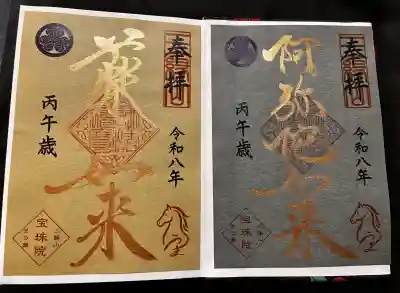 奉拝
阿弥陀如来
令和八年
丙午歳
宝珠院
奉拝
薬如来
令和八年
丙午歳
宝珠院